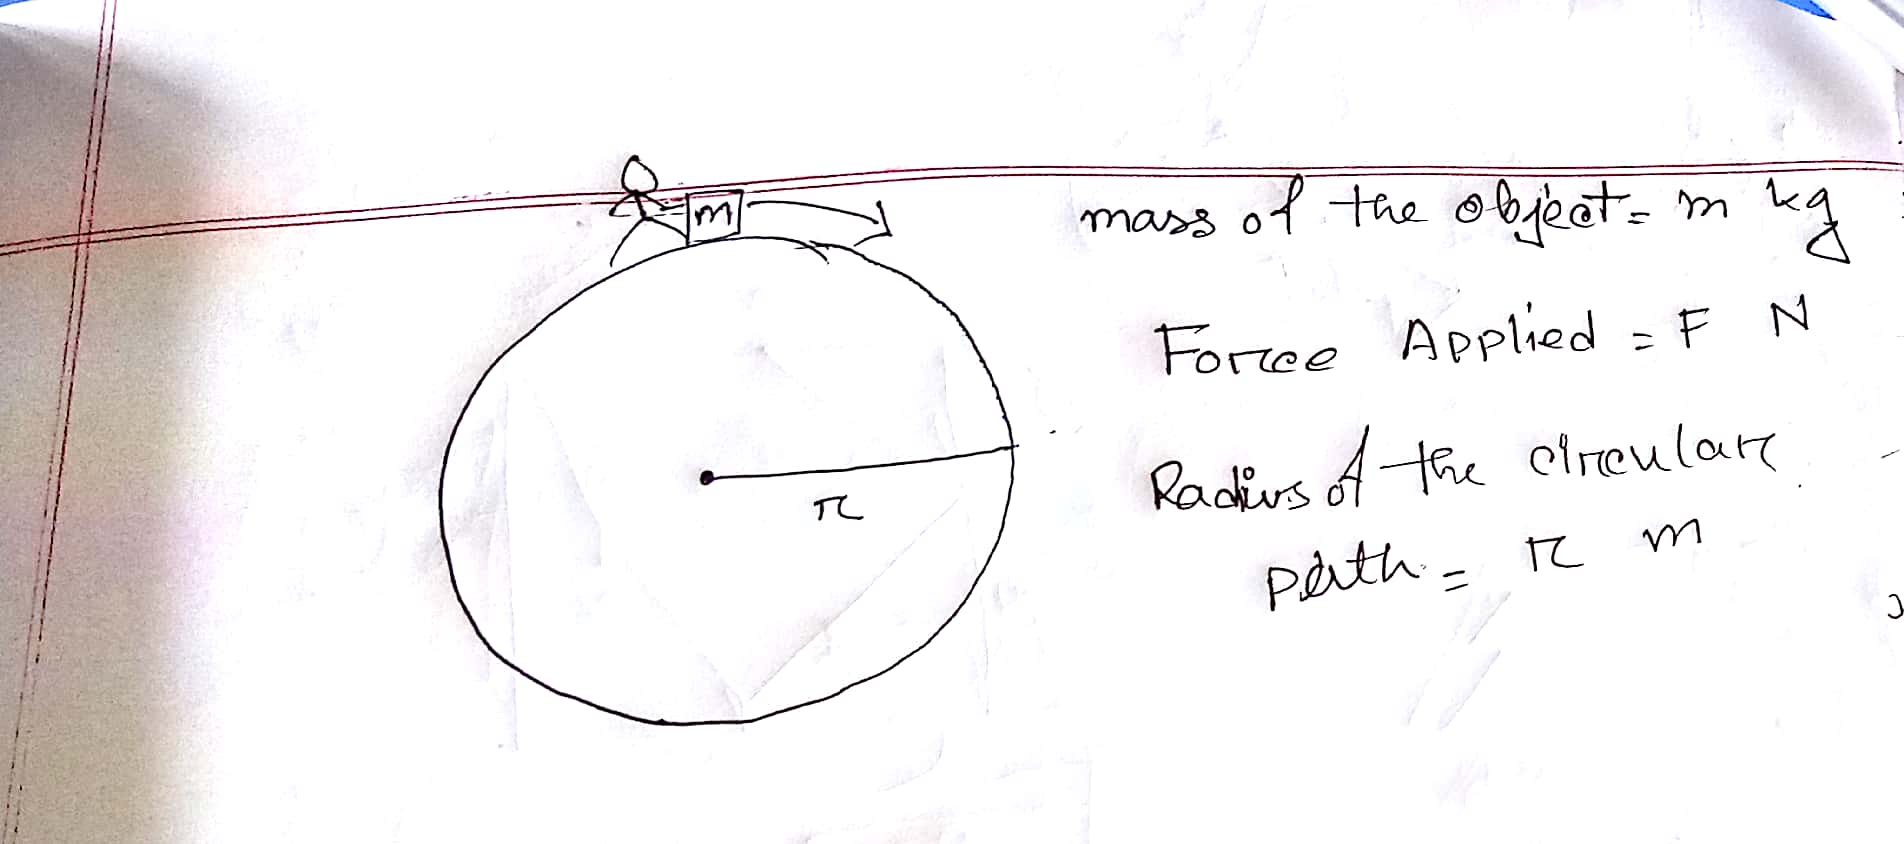 m
mass of the object = m kg
Force Applied = F N
r
Radius of the circular
path = r m